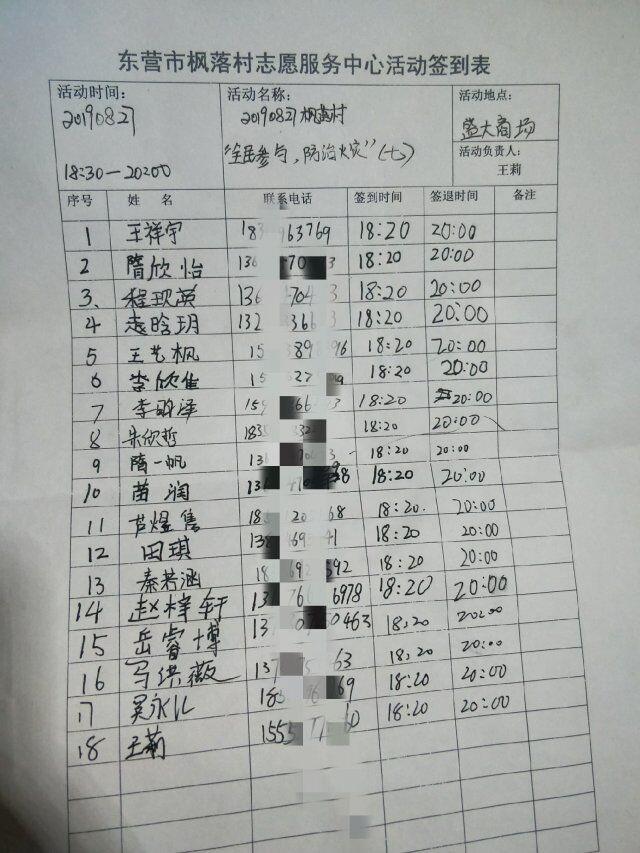 东营市枫落村志愿服务中心活动签到表
活动时间: 活动名称: 活动地点:
20190827 20190827枫落村 盛大商场
18:30—20:00 "全民参与,防治火灾"(七) 活动负责人:
王莉
序号 姓 名 联系电话 签到时间 签退时间 备注
1 王祥宇 963769 18:20 20:00
2 隋欣怡 136 70 3 18:20 20:00
3、 程玟英 136 704 3 18:20 20:00
4 132 366 3 18:20 20:00
5 王艺枫 15 389 96 18:20 20:00
6 李欣佳 15 627 09 18:20 20:00
7 李明泽 159 66 3 18:20 20:00
8 朱欣哲 1835 32 18:20 20:00
9 隋一帆 13 70 3 18:20 20:00
10 苗润 13 8 18:20 20:00
11 芦煜隽 18 20 68 18:20 20:00
12 田琪 138 695 41 18:20 20:00
13 秦若涵 18 692 592 18:20 20:00
14 赵梓轩 13 76 6978 18:20 20:00
15 岳睿博 13 07 0463 18:20 20:00
16 马洪薇 137 63 18:20 20:00
17 吴永 185 69 18:20 20:00
18 王莉 1555